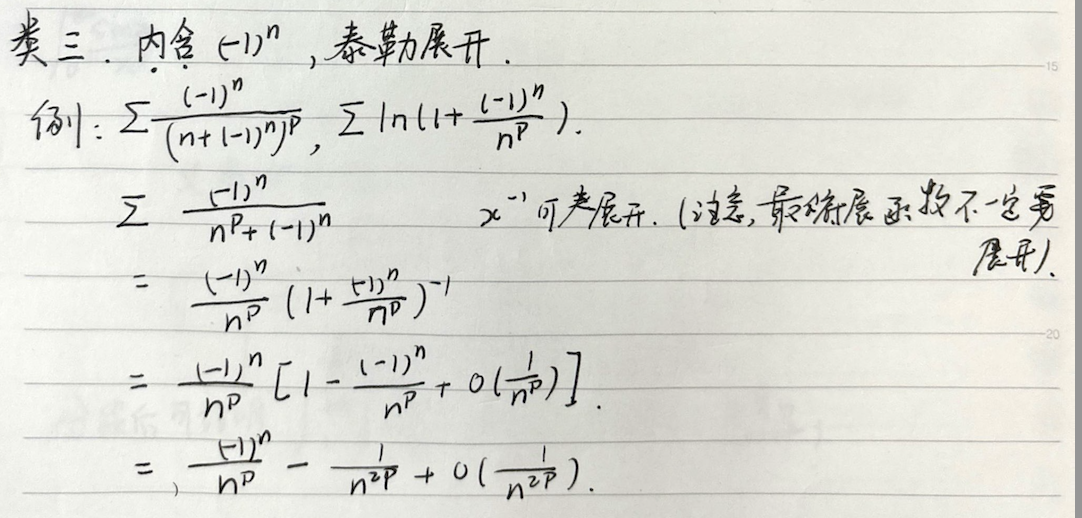 类三. 内含 (-1)^n , 泰勒展开.
15
例: Σ (-1)^n / (n+(-1)^n)^p , Σ ln(1+ (-1)^n / n^p ).
Σ (-1)^n / (n^p+(-1)^n) x^{-1} 可类展开. (注意, 最终展函数不一定要
展开).
= (-1)^n / n^p (1+ (-1)^n / n^p )^{-1}
20
= (-1)^n / n^p [1 - (-1)^n / n^p + o(1/n^p)].
= (-1)^n / n^p - 1 / n^{2p} + o(1/n^{2p}).